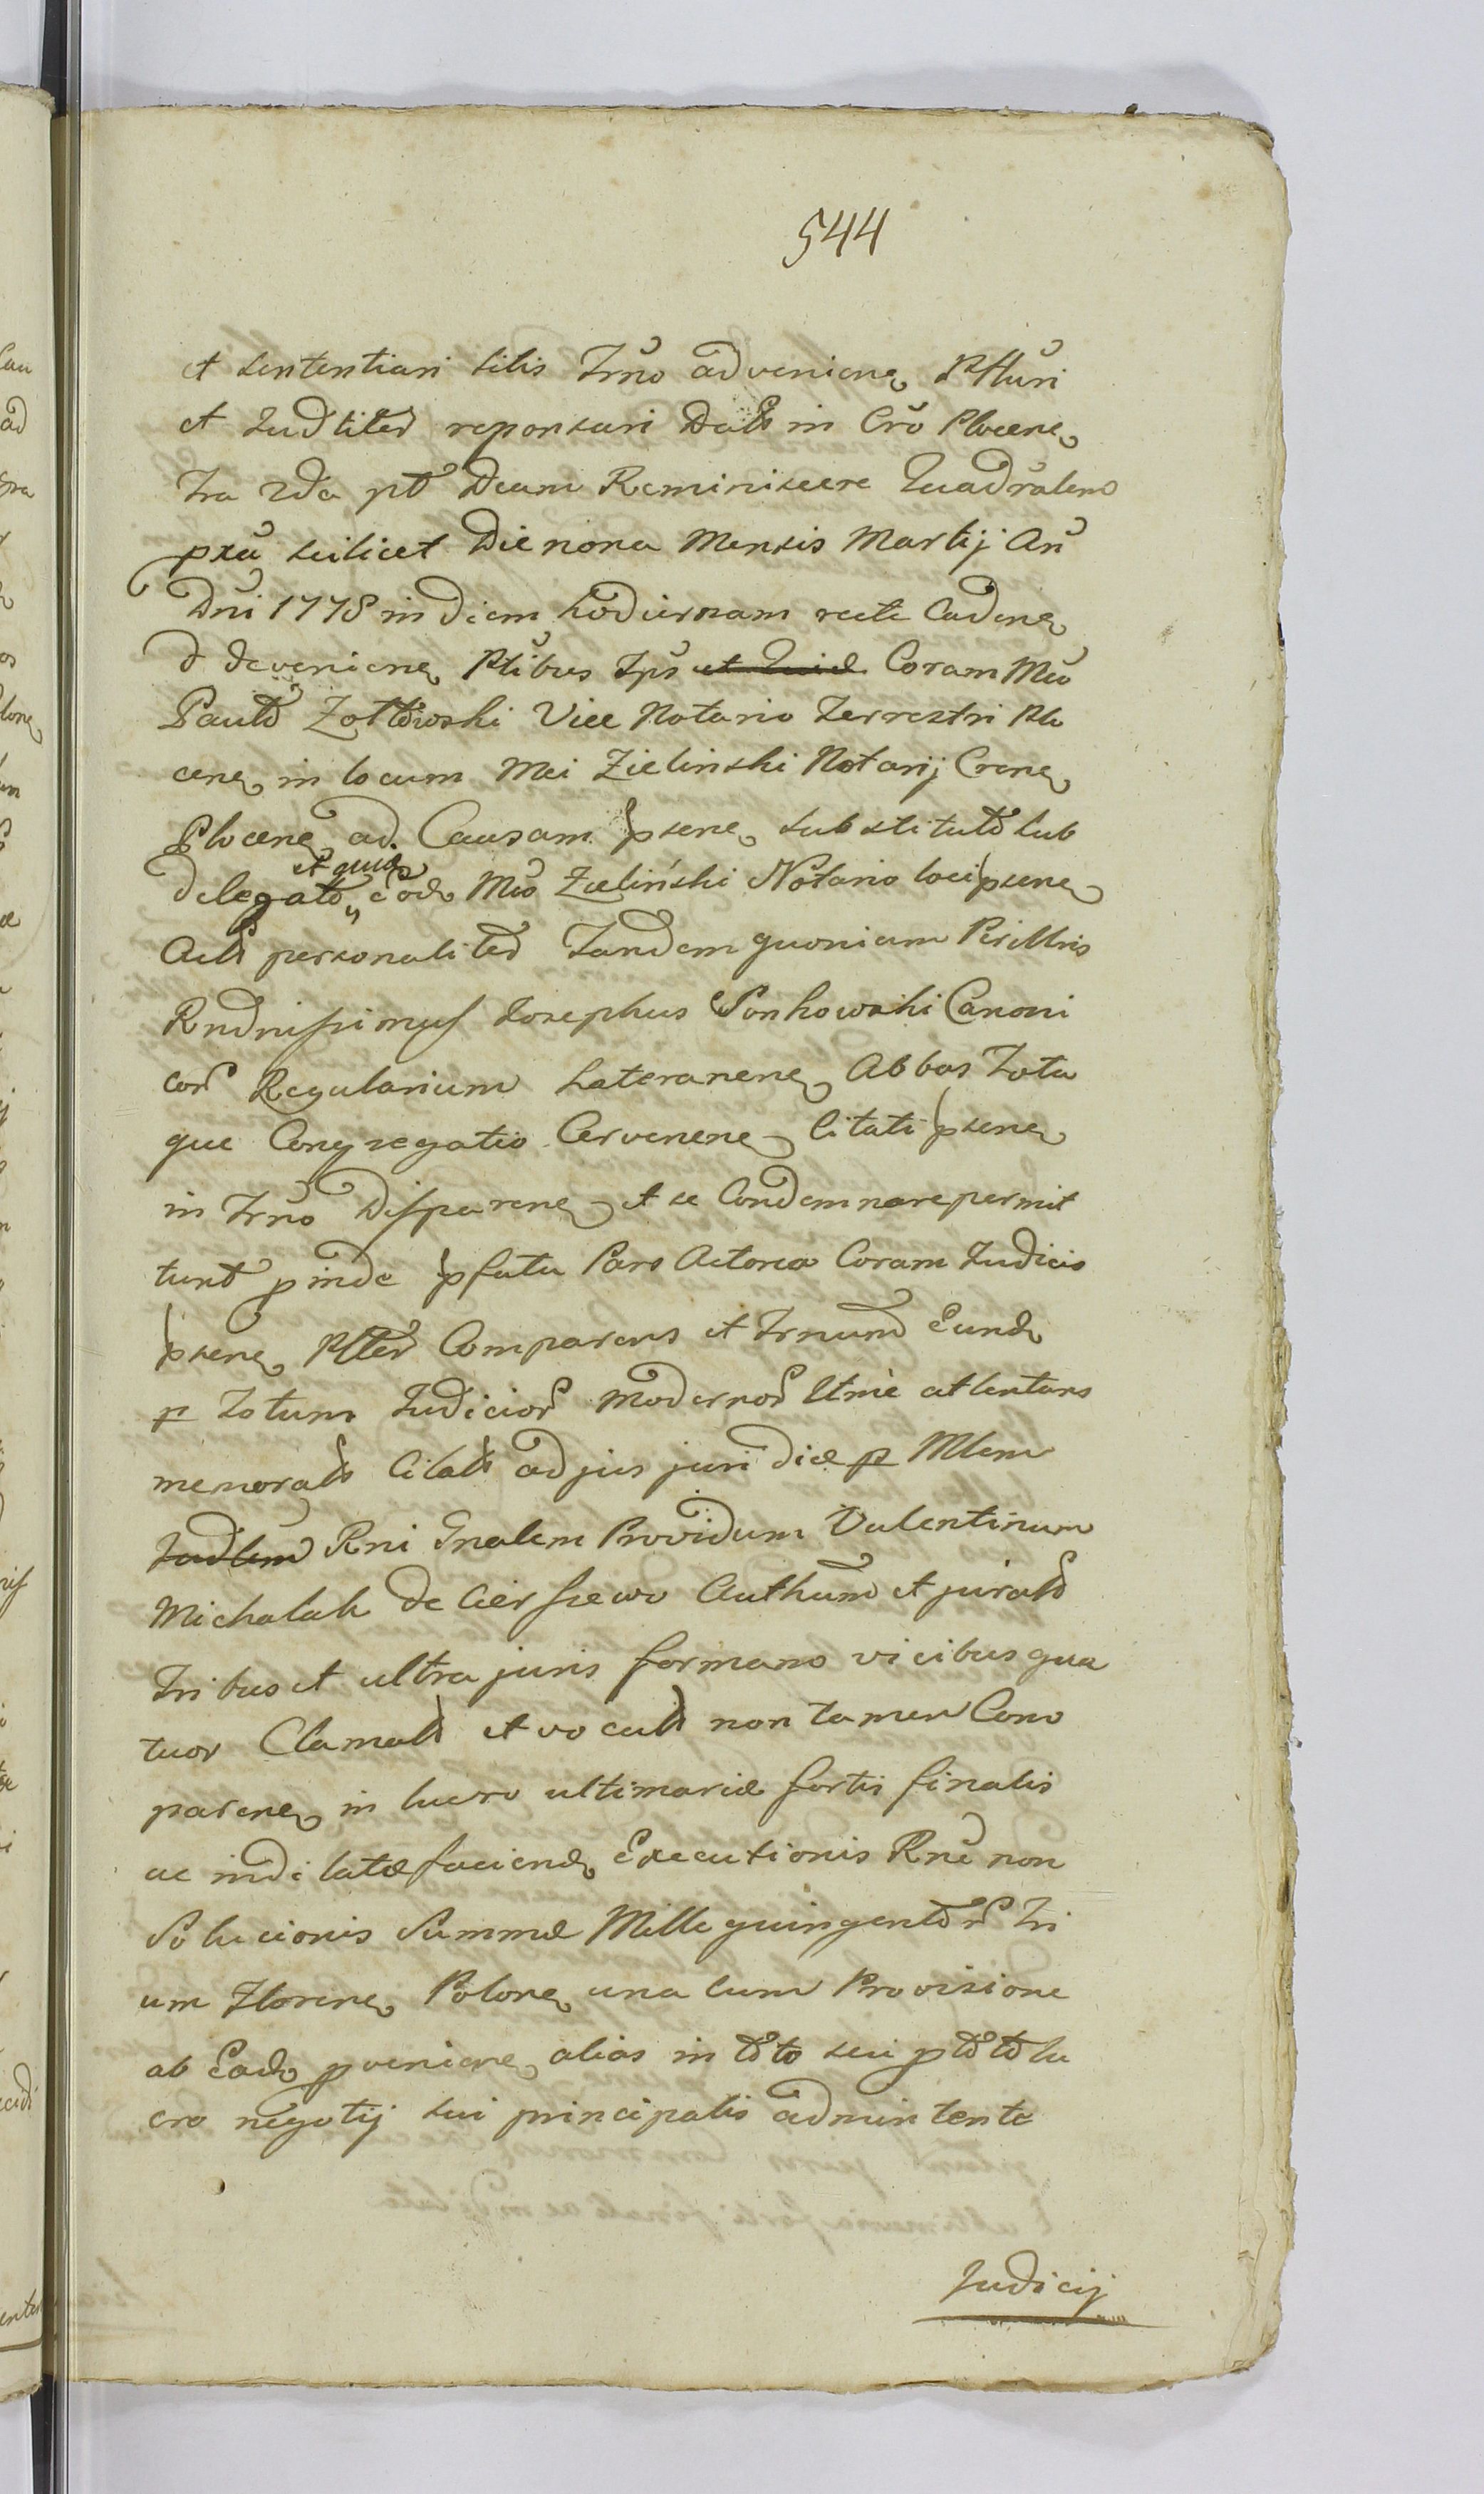 544
et sententiari sitis Trno advenienẹ Ptturi
et Judliter reponsuri Datt in Cro Plocenẹ
Fra 2da pt Dcam Reminiscere Quadralem
pxa scilicet Die nona Mensis Martij An
Dni 1778 in diem hodiernam recte Cadenẹ
d devenienẹ Ptibus Ips et Quid Coram Mco
Paulo Zołtowski Vice Notario Terrestri Plo
cenẹ in locum Mci Zielinski Notarij Crenẹ
Plocenẹ ad Causam psenẹ substituto sub
delegato, et quidẹ eodẹ Mco Zielinski Notario loci psenẹ
Actis personaliter Tandem quoniam Perillris
Rndnissimus Josephus Ponkowski Canoni
cor Regularium Lateranenẹ Abbas Tota
que Congregatio Cervenenẹ Citati psenẹ
in Trno Disparenẹ et se Condemnare permit
tunt pinde pfata Pars Actorea Coram Judicio
psenẹ Ptter Comparens et Trnum Eundẹ
p Totum Judicior Modernor Ltme attentans
memorats Citats ad jus juridice p Mlem
Judlem Rni Gnalem Providum Valentinum
Michalak de Cierszewo Authum et jurats
Tribus et ultra juris formam vicibus qua
tuor Clamats et vocats non tamen Com
parenẹ in lucro ultimariæ fortis finalis
ac indilatæ faciendẹ Executionis Rne non
Solucionis Summæ Mille quingentor Tri
um Florenẹ Polonẹ una cum Provisione
ab Eadẹ provenienẹ alias in toto seu ptto lu
cro negotij sui principalis adminTente
Judicij